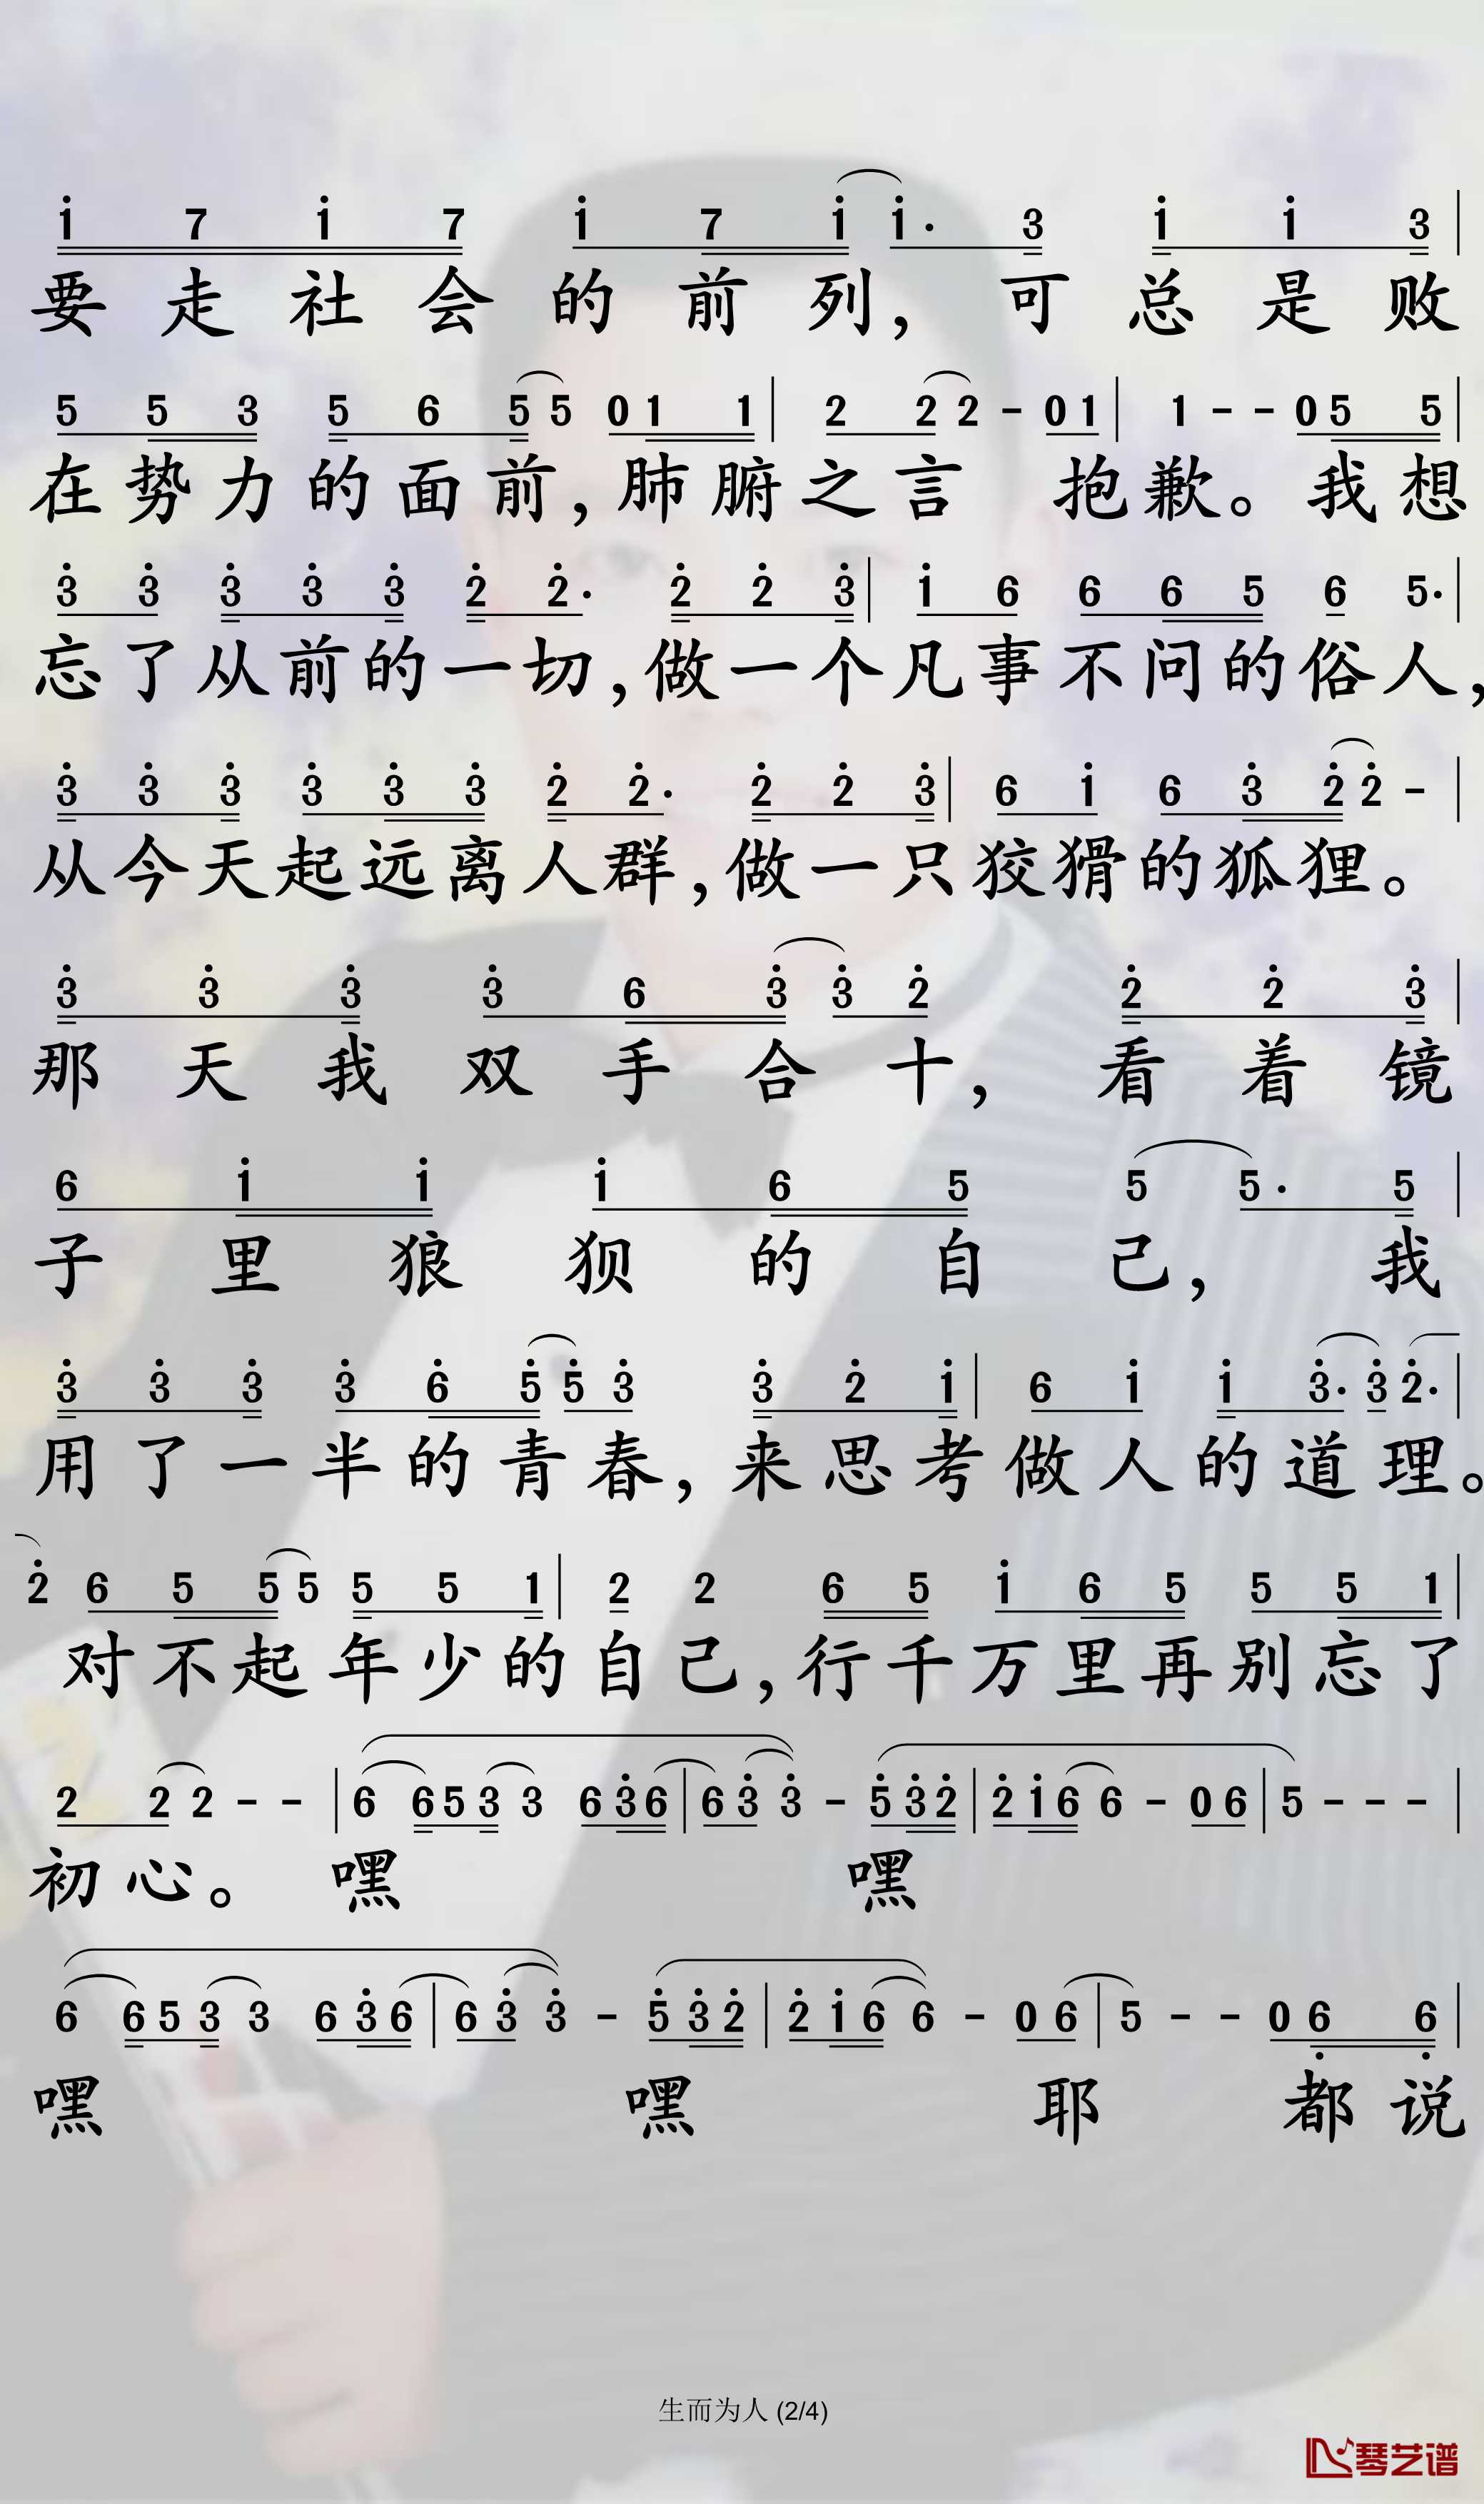 i 7 i 7 i 7 i i· 3 i i 3
要走社会的前列，可总是败
5 5 3 5 6 5 5 0 1 1 2 2 2 - 0 1 1 - - 0 5 5
在势力的面前，肺腑之言 抱歉。我想
3 3 3 3 3 2 2· 2 2 3 i 6 6 6 5 6 5·
忘了从前的一切，做一个凡事不问的俗人，
3 3 3 3 3 3 2 2· 2 2 3 6 i 6 3 2 2 -
从今天起远离人群，做一只狡猾的狐狸。
3 3 3 3 6 3 3 2 2 2 3
那天我双手合十，看着镜
6 i i i 6 5 5 5· 5
子里狼狈的自己，我
3 3 3 3 6 5 5 3 3 2 i 6 i i 3· 3 2·
用了一半的青春，来思考做人的道理。
2 6 5 5 5 5 5 1 2 2 6 5 i 6 5 5 5 1
对不起年少的自己，行千万里再别忘了
2 2 2 - - 6 6 5 3 3 6 3 6 6 3 3 - 5 3 2 2 i 6 6 - 0 6 5 - - -
初心。嘿 嘿
6 6 5 3 3 6 3 6 6 3 3 - 5 3 2 2 i 6 6 - 0 6 5 - - 0 6 6
嘿 嘿 耶 都说
生而为人 (2/4)
琴艺谱